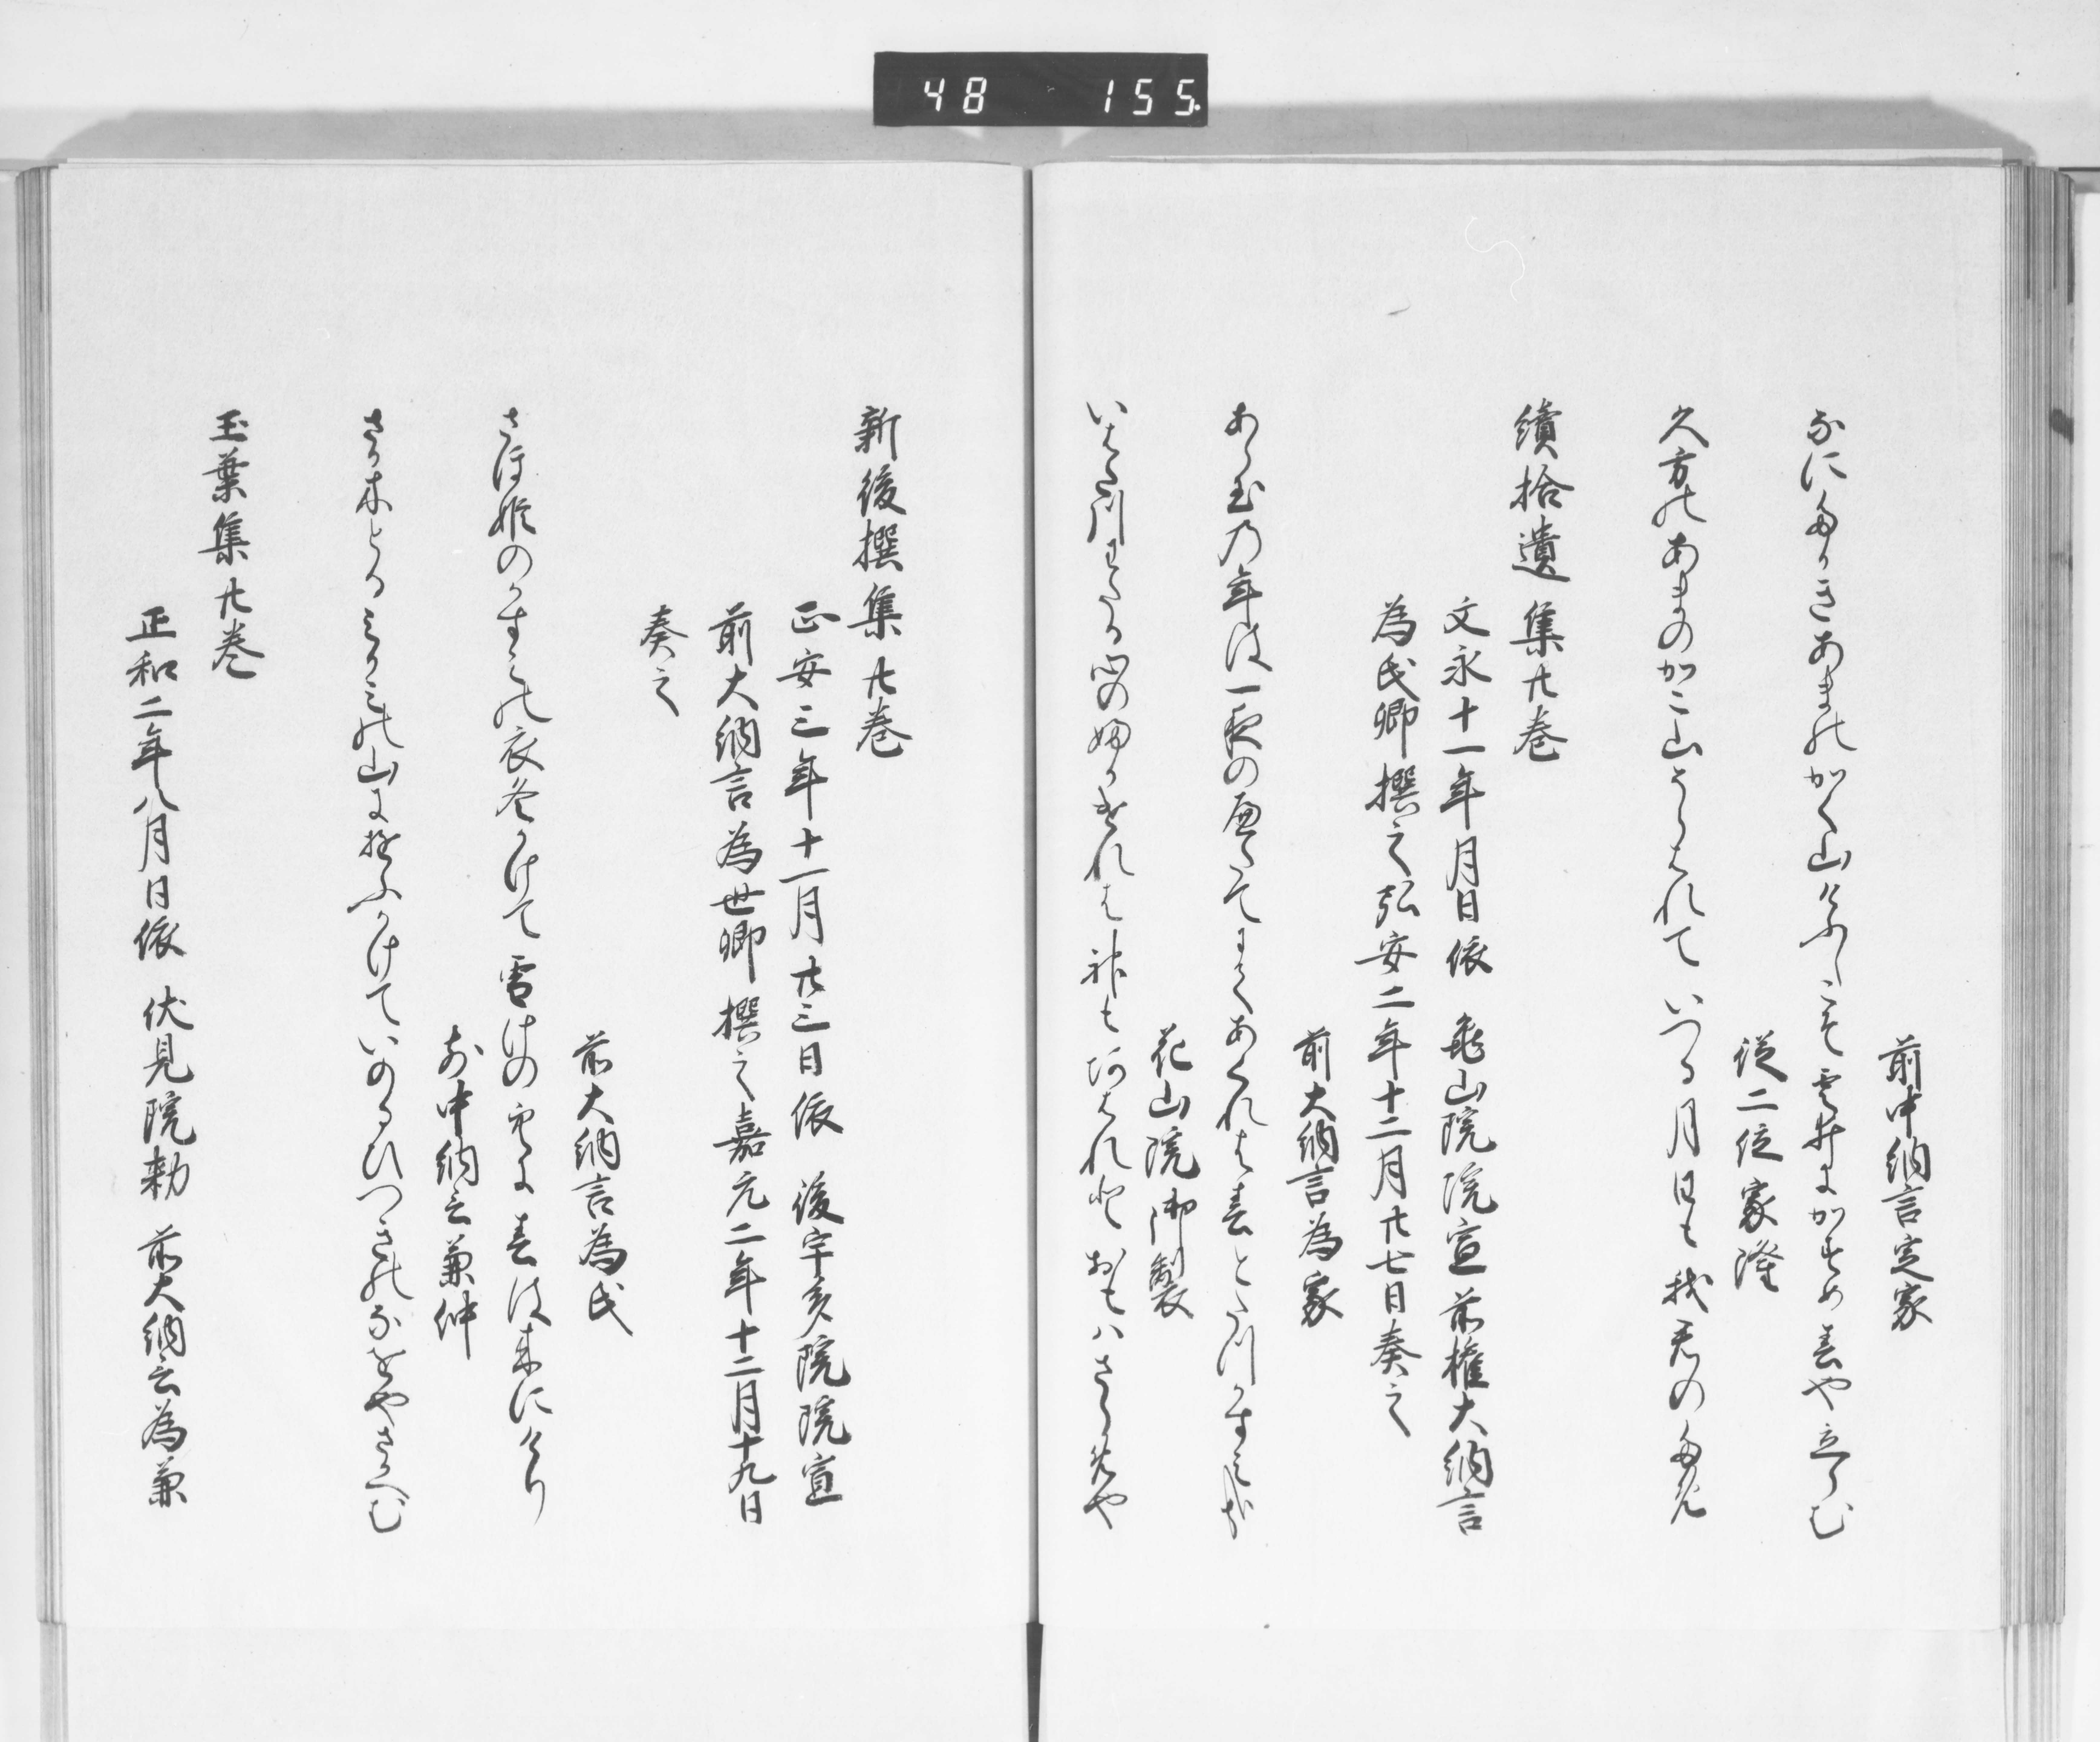 48 155
前中納言定家
なにたかきあまのかく山けふしこそ雲井にかすめ春や立らむ
従二位家隆
久方のあまのかこ山てらされていつる月日も我君のため
續拾遺集廿巻
文永十一年月日依 亀山院院宣前権大納言
為氏卿撰之弘安二年十二月廿七日奏之
前大納言為家
あら玉の年は一夜のへたてにてあくれは春とたつかすみかな
花山院御製
新後撰集廿巻
正安三年十一月廿三日依 後宇多院院宣
前大納言為世卿撰之嘉元二年十二月十九日
奏之
前大納言為氏
さほ姫のかすみの衣冬かけて雪けの空に春は来にけり
前中納言兼仲
さか木とるみかみの山にゆふかけていのるひつきのなをやさかへむ
玉葉集廿巻
正和二年八月日依 伏見院勅 前大納言為兼